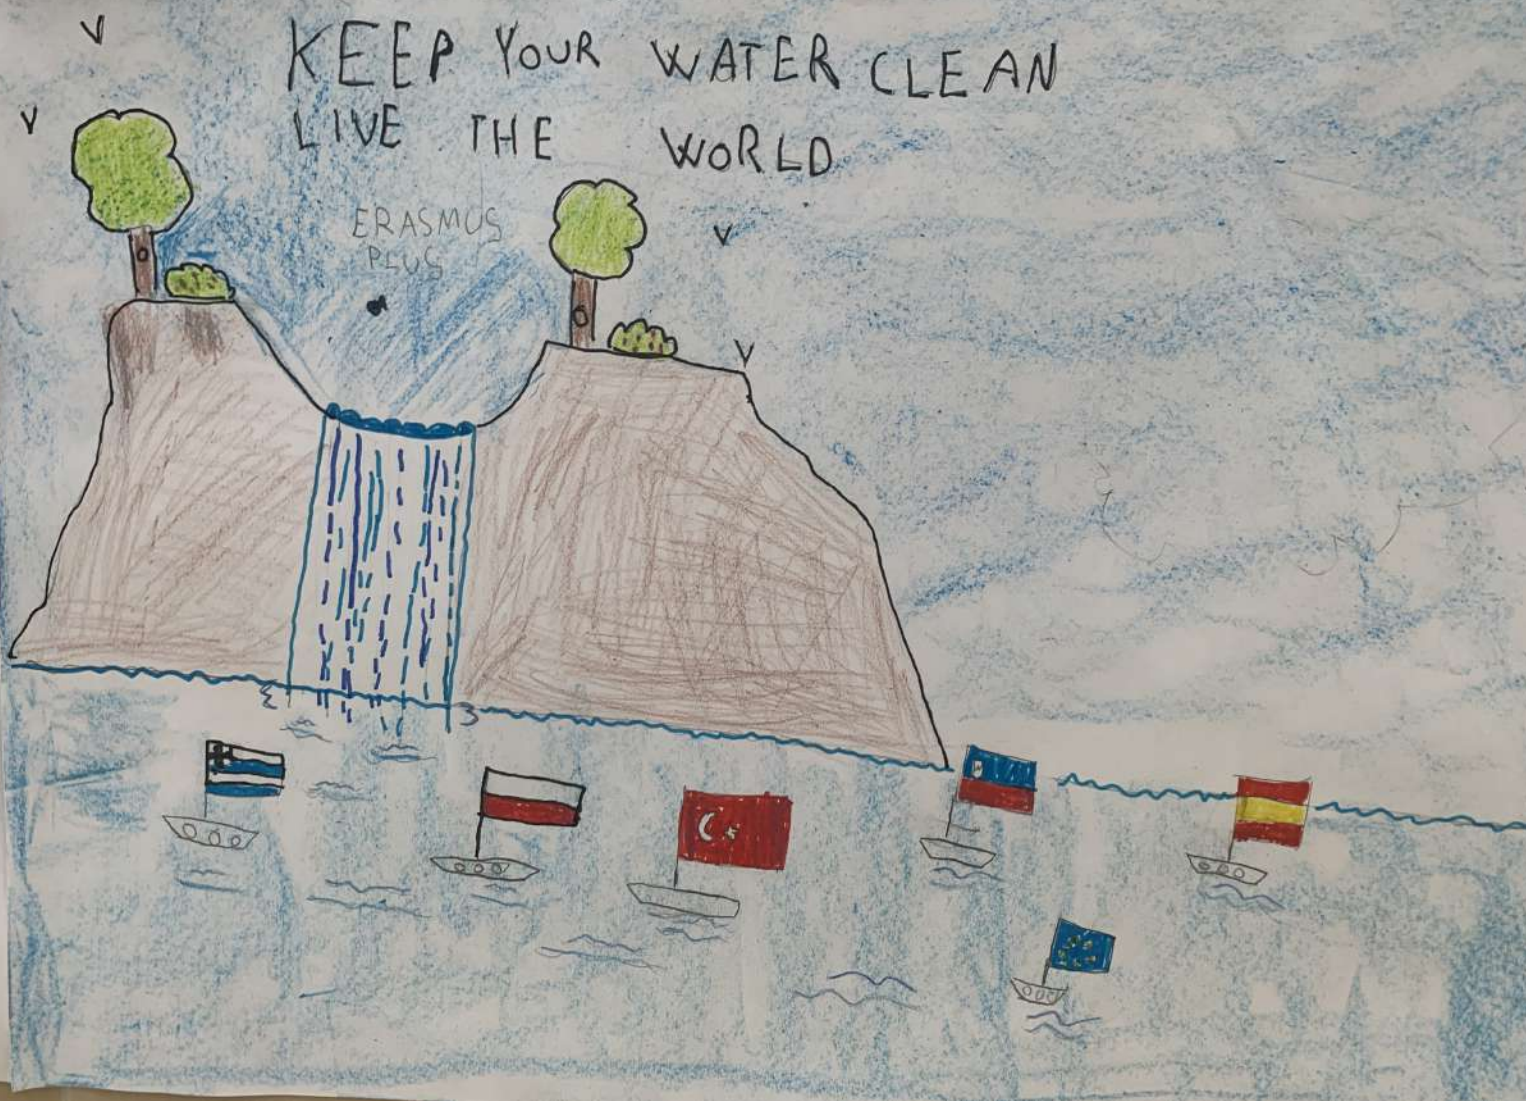 KEEP YOUR WATER CLEAN
LIVE THE WORLD
ERASMUS
PLUS